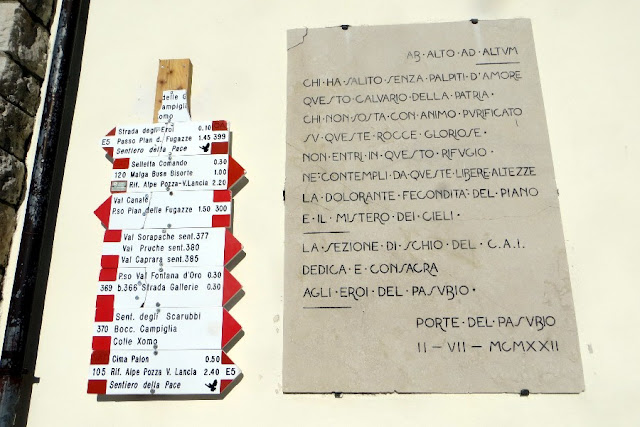 delle
Campiglia
omo
Strada degli Eroi 0.10
E5 Passo Pian d. Fugazze 1.45 399
Sentiero della Pace
Selletta Comando 0.30
120 Malga Buse Bisorte 1.00
Rif. Alpe Pozza-V.Lancia 2.20
Val Canale
P.so Pian delle Fugazze 1.50 300
Val Sorapache sent.377
Val Pruche sent.380
Val Caprara sent.385
P.so Val Fontana d'Oro 0.30
369 b.366 Strada Gallerie 0.30
Sent. degli Scarubbi
370 Bocc. Campiglia
Colle Xomo
Cima Palon 0.50
105 Rif. Alpe Pozza V. Lancia 2.40 E5
Sentiero della Pace
AB·ALTO·AD·ALTVM
CHI·HA·SALITO·SENZA·PALPITI·D'AMORE
QVESTO·CALVARIO·DELLA·PATRIA·
CHI·NON·SOSTA·CON·ANIMO·PVRIFICATO
SV·QVESTE·ROCCE·GLORIOSE·
NON·ENTRI·IN·QVESTO·RIFVGIO·
NE:CONTEMPLI·DA·QVESTE·LIBERE·ALTEZZE
LA·DOLORANTE·FECONDITA:DEL·PIANO
E·IL·MISTERO·DEI·CIELI·
LA·SEZIONE·DI·SCHIO·DEL·C.A.I.
DEDICA·E·CONSACRA
AGLI·EROI·DEL·PASVBIO·
PORTE·DEL·PASVBIO
II-VII-MCMXXII